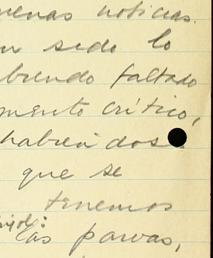 uenas noticias.
n sido lo
briendo faltado
mento crítico,
habiéndos
que se
tenemos
las parvas,